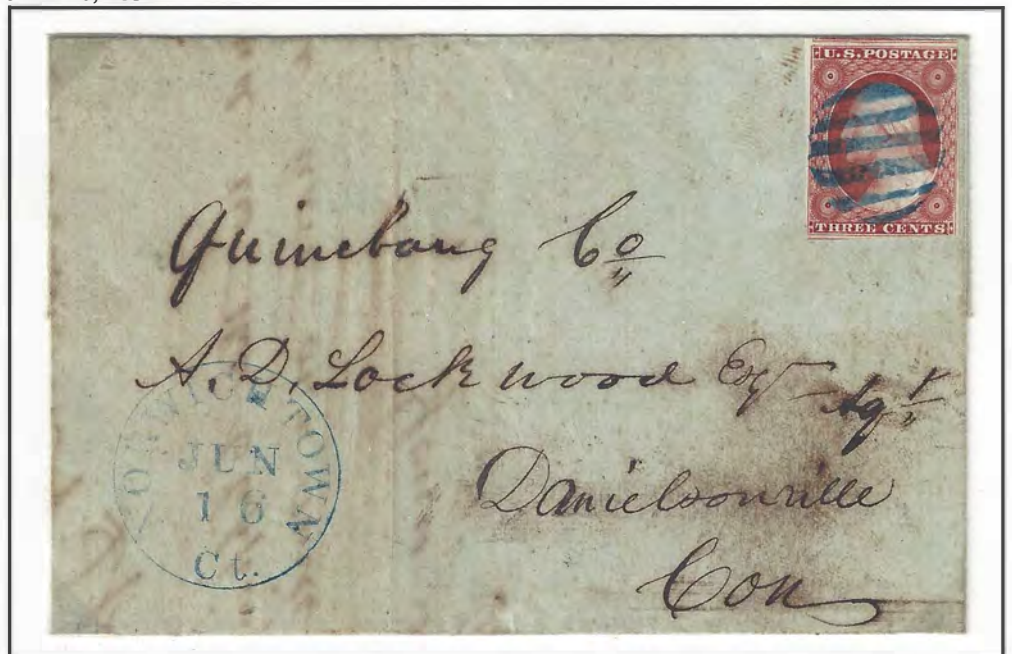 U.S. POSTAGE
THREE CENTS
Quinebaug Co
A. D. Lockwood Esqr Agt
Danielsonville
Con
NORWICH TOWN
JUN
16
Ct.